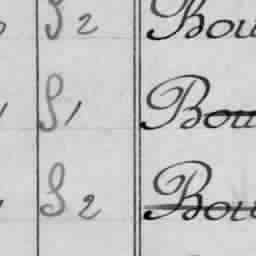 S 2 Bou
S 1 Bou
S 2 Bou